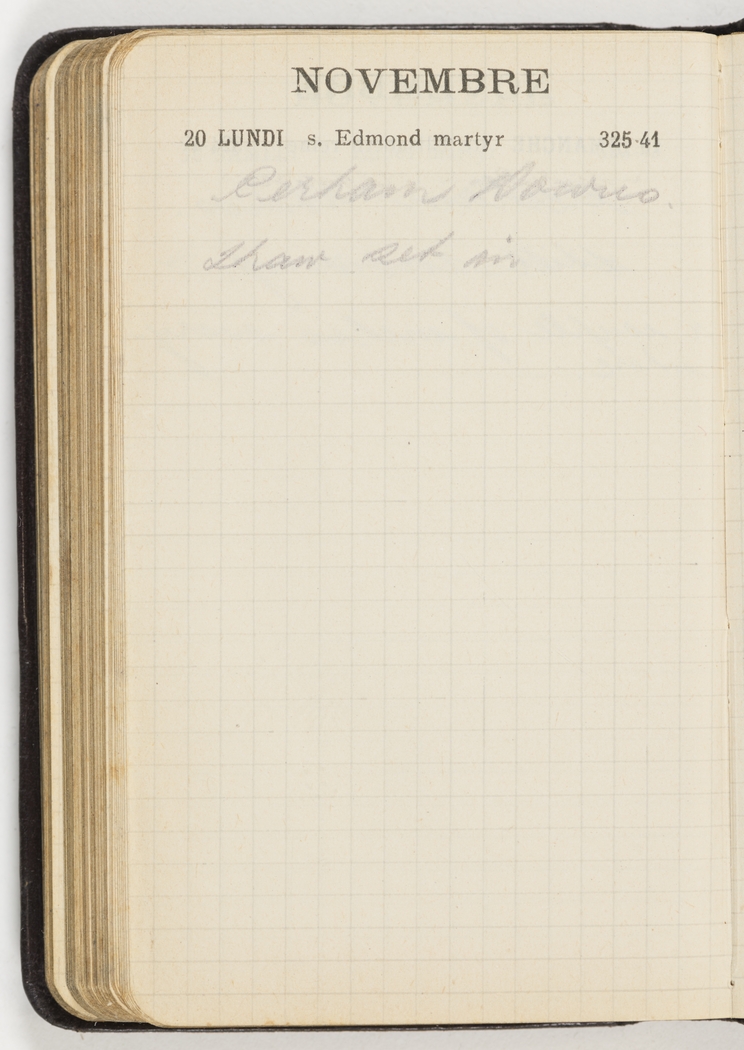 NOVEMBRE
20 LUNDI s. Edmond martyr 325-41
Perham Downs.
Thaw set in